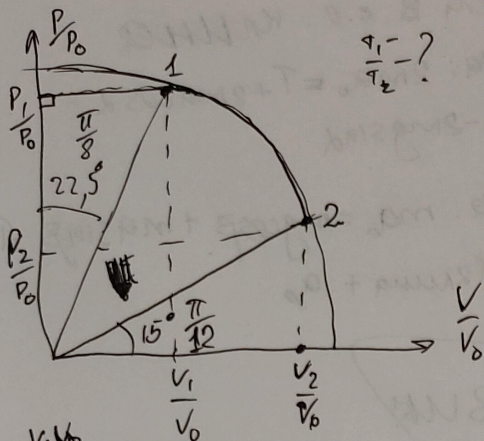 P/P₀
T₁/T₂ - ?
1
P₁/P₀
π/8
22,5°
2
P₂/P₀
15° π/12
V/V₀
V₁/V₀
V₂/V₀